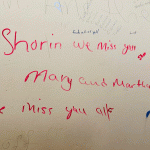 Shorin we miss you
Mary and Martha
miss you all